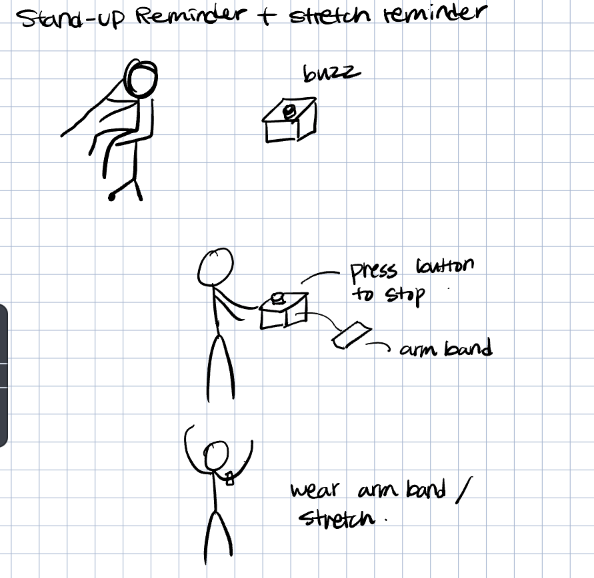 Stand-up Reminder + stretch reminder
buzz
press button
to stop
arm band
wear arm band /
stretch.